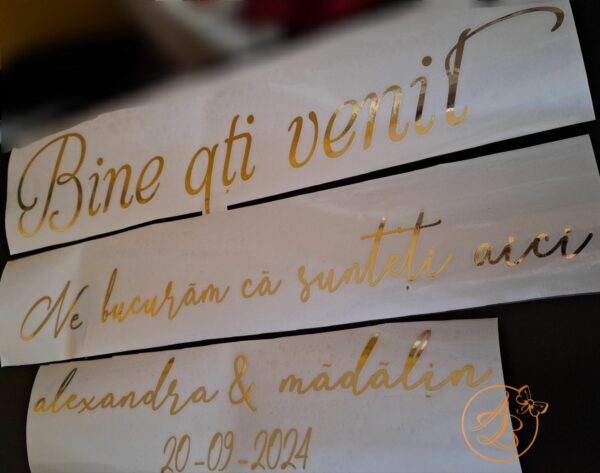 Bine ați venit
Ne bucurăm că sunteți aici
alexandra & mădălin
20-09-2024